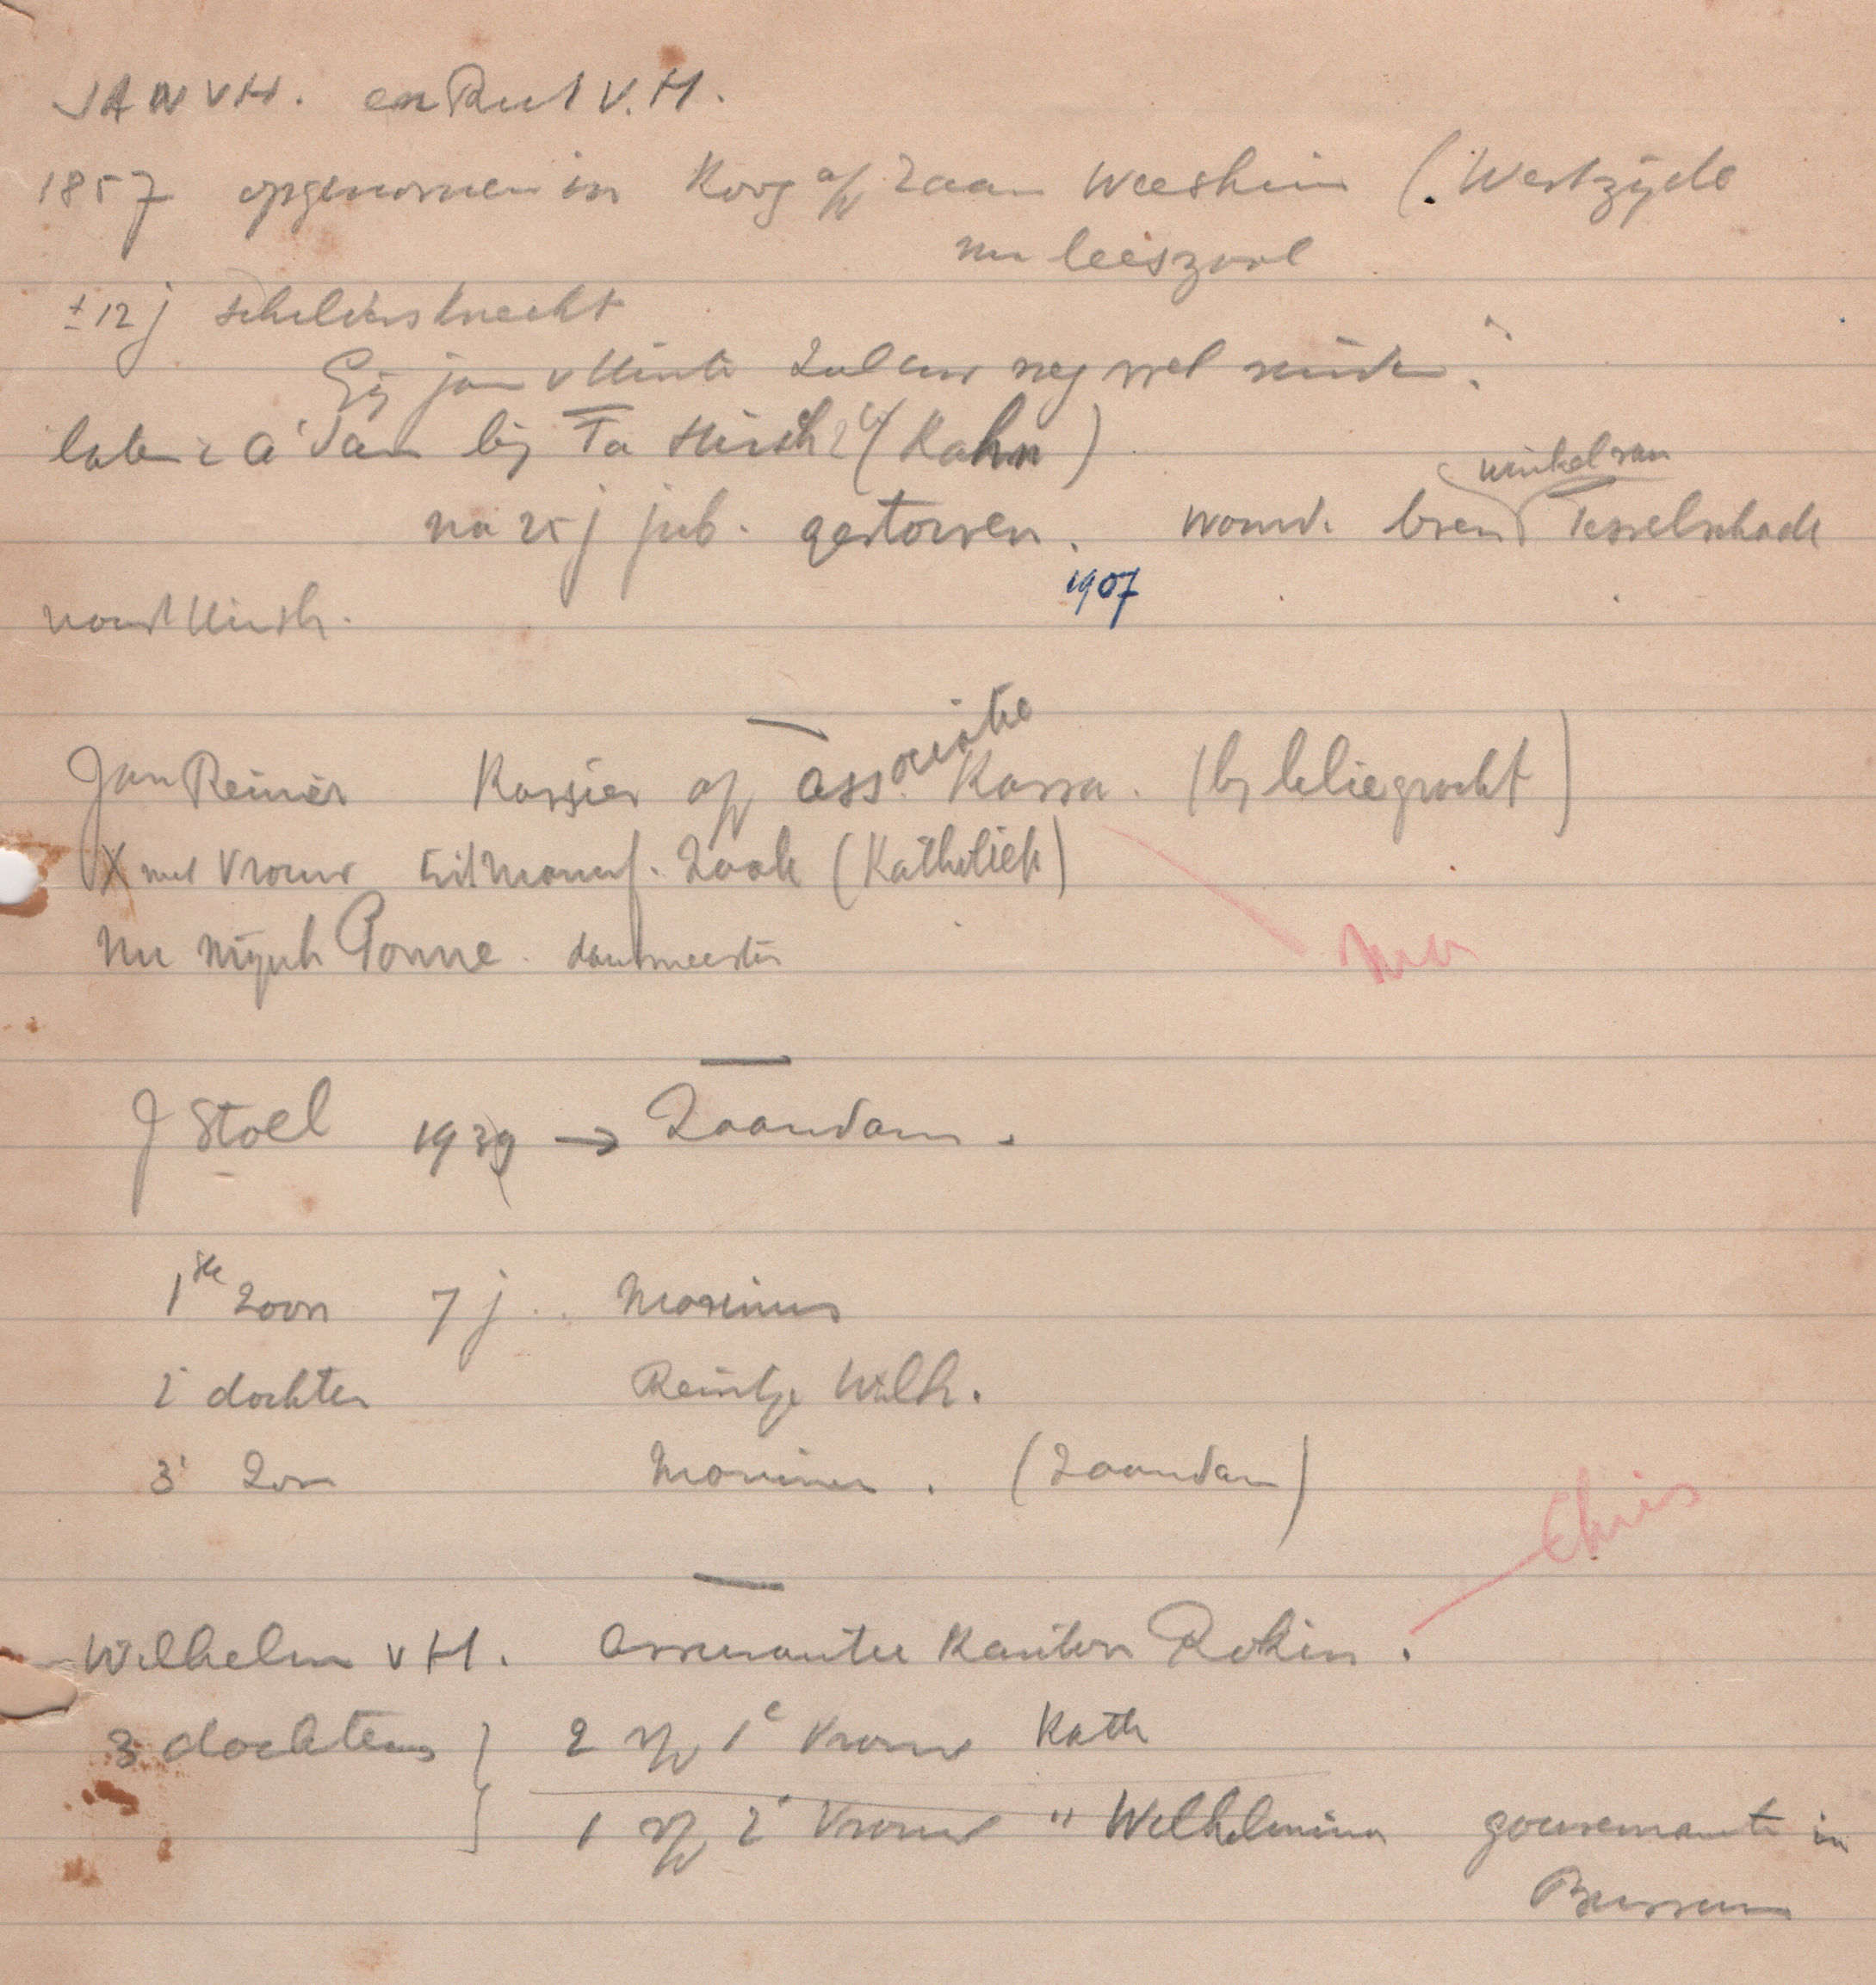 JAN v H. en Ruul V.H.
1857 opgenomen in Koog a/d Zaan Weeshuis (. Westzijde
nu leeszaal
± 12 j schildersknecht
Gij jan v Hinte zul
later i A'dam bij Fa Hirsh & Co (Kahn)
winkel van
na 25 j jub. gestorven. woonde boven Tesselschade
1907
naast Hirsh.
Jan Reinier Kassier op associatie Kassa. (bij Leliegracht)
X met Vrouw uit Manuf. Zaak (Katholiek)
nu Mijnh Ponne. dansmeester
J Stoel 1939 → Zaandam.
1ste zoon 7 j.. Marinus
2e dochter Reintje Wilh.
3e zoon Marinus. (Zaandam)
Chris
Wilhelm v H. Assurantie Kantoor Rokin.
3 dochters } 2 v/d 1e Vrouw Kath
1 v/d 2e Vrouw " Wilhelmina gouvernante in
Bussum